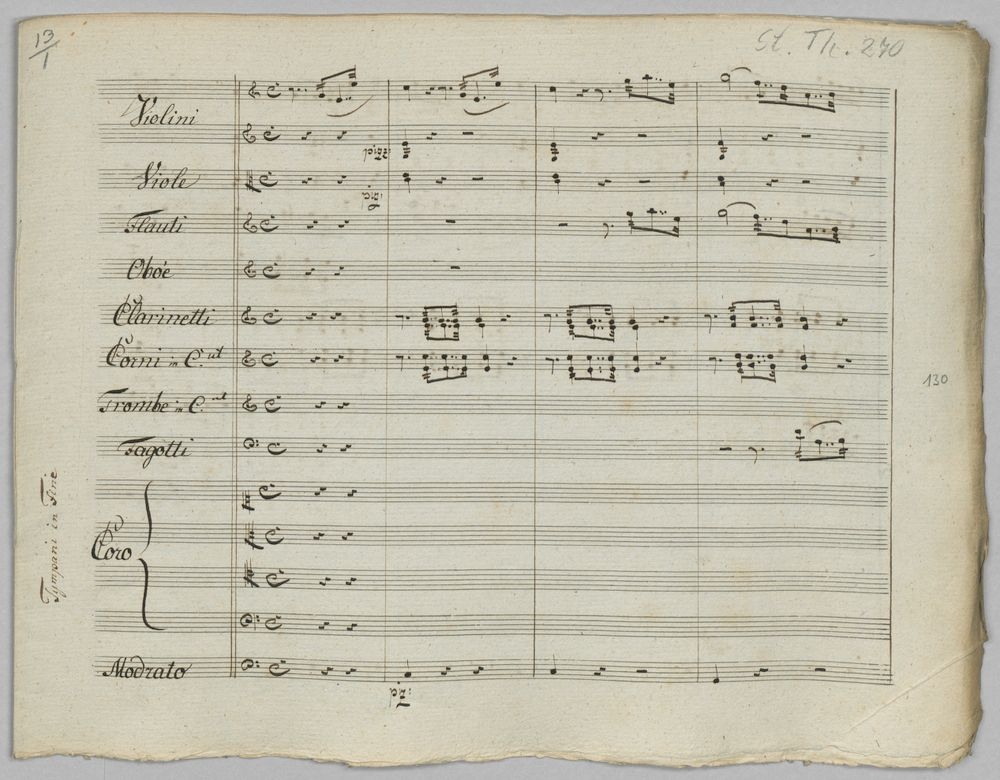 13/1
St. Th. 270
Violini
pizz:
Viole
Flauti
Oboe
Clarinetti
Corni in C. ut
130
Trombe in C. ut
Fagotti
Tympani in Fine
Coro
Modrato